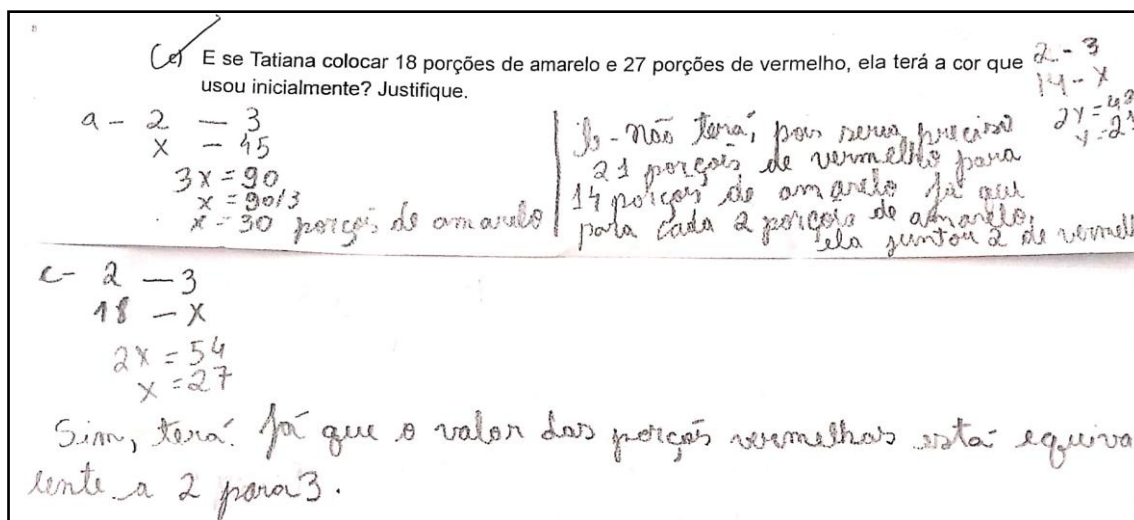 (c) E se Tatiana colocar 18 porções de amarelo e 27 porções de vermelho, ela terá a cor que
usou inicialmente? Justifique.
2 - 3
14 - x
2x = 42
x = 21
a - 2 - 3
x - 45
3x = 90
x = 90/3
x = 30 porções de amarelo
b - não terá, pois seria preciso
21 porções de vermelho para
14 porções de amarelo já que
para cada 2 porções de amarelo,
ela juntou 2 de vermel
c - 2 - 3
18 - x
2x = 54
x = 27
Sim, terá. Já que o valor das porções vermelhas está equiva
lente a 2 para 3.